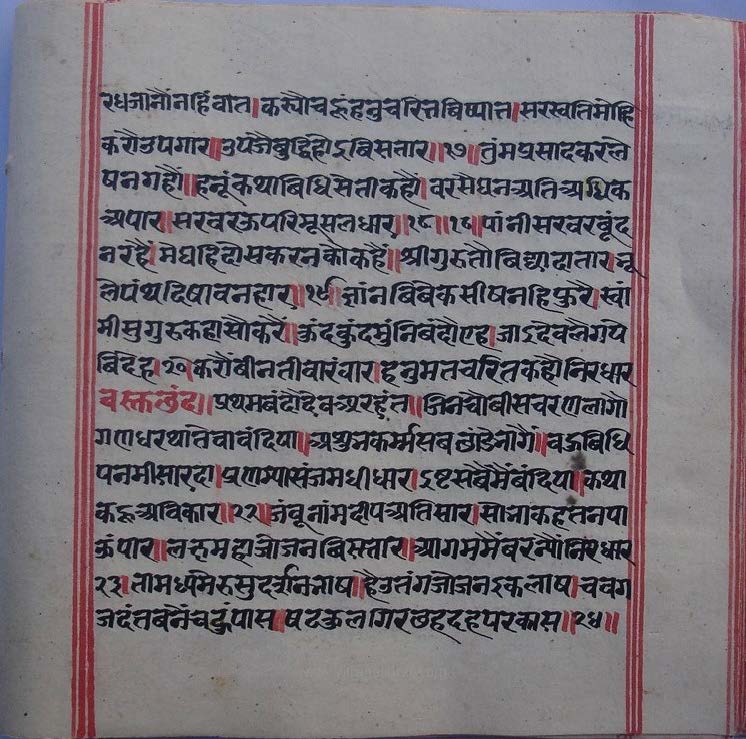 रधजानौंनहिवात।कस्यौचहूंहनुचरित्तविष्पात।सरस्वतिमोहि
करौउपगार॥उपजैबुद्धिहोइबिसतार॥१७॥तुंमप्रसादकरले
षनगहौं॥हनूंकथाबिधिसेतीकहौं।बरसैघनअतिअधिक
अपार।सरवरऊपरिमूसलधार॥१८॥पांनीसरवरबूंद
नरहै।मेघहिदोसकरनकोकहै॥श्रीगुरुतौबिद्यादातार।भू
लेपंथदिषावनहार॥१९॥ज्ञांनबिबेकसीषनहिफुरै।स्वां
मीसुगुरुकहासौकरै।कुंदकुंदमुंनिबंदौएह।जाइदेवलैगपे
बिदेह।२०।करौंबीनतीबारंवार।हनुमतचरितकहौनिरधार
वस्तछंद॥प्रथमबंदौदेवअरहंत॥जिनचौबीसचरणलागौ
गणधरथानेवाबंदिपा॥अशुनकर्म्मसबछांडेनागैं॥बहुबिधि
पनमीसारदा।प्रणम्पासंजमधीधार।इष्टसबैमैंबंदिपा।कथा
कहुअविकार॥२२॥जंबूनांमदीपअतिसार।सोनाकहतनपा
ऊंपार॥लहमहाजोजनबिसतार॥आगममैंबरन्यौंनिरधार
२३।तामधिमेरुसुदर्शननाष।हैउतंगजोजनइकलाष।चवग
जदंतबनैंचहुंपास।षटकुलगिरछहदहपरकास॥२४॥